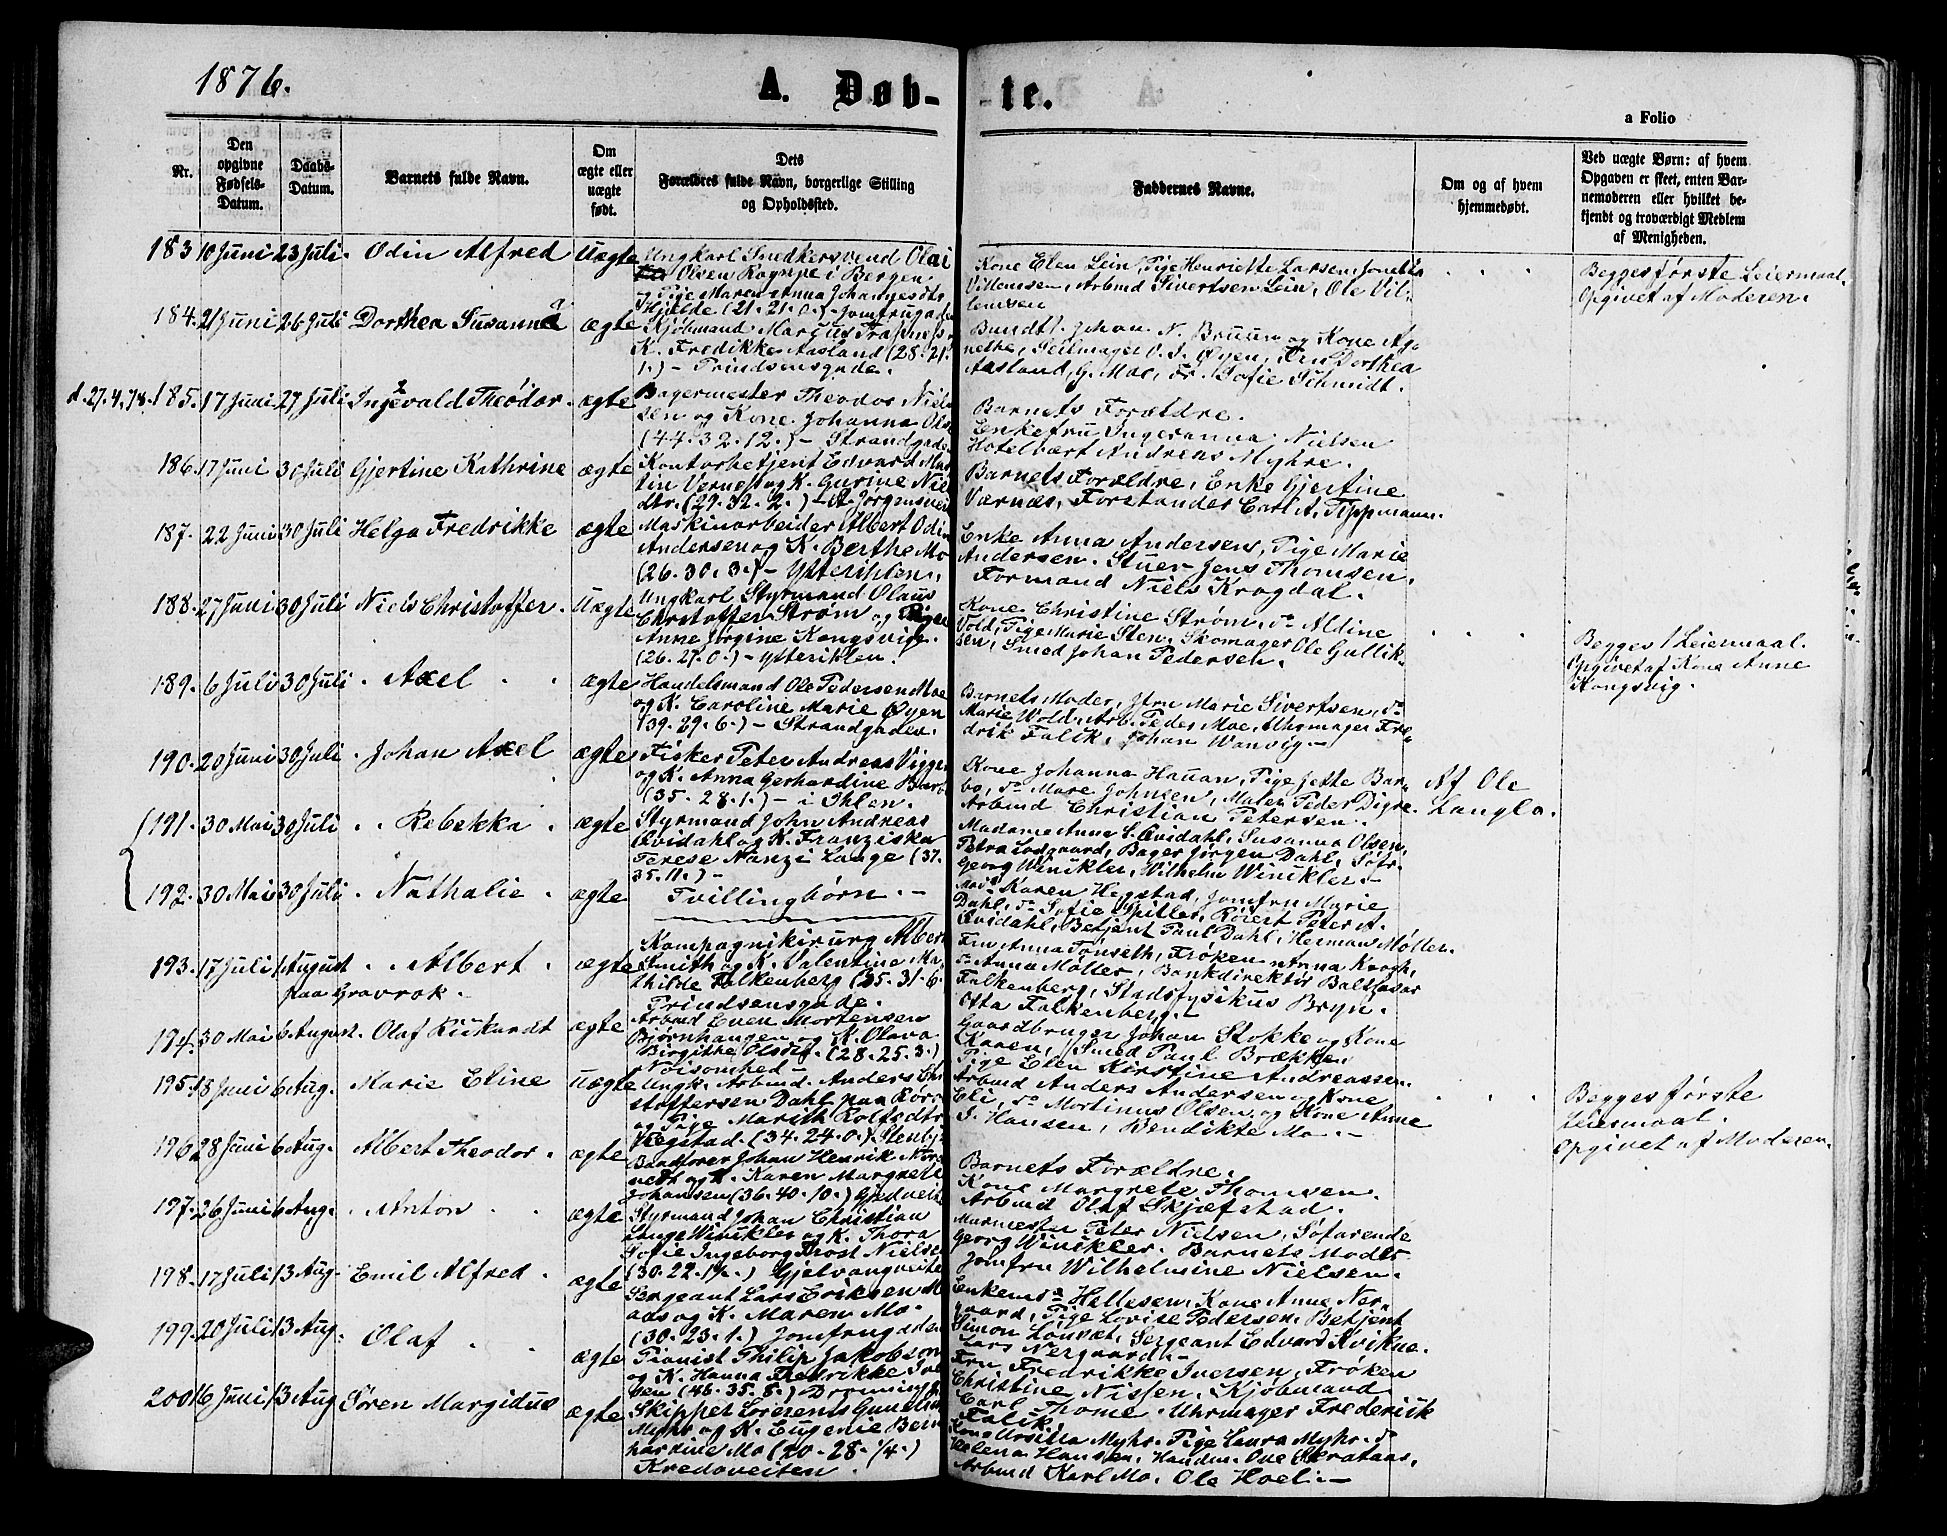 1876.
A. Døb-
te.
a Folio
Nr.
Den opgivne Fødsels-Datum.
Daabs-Datum.
Barnets fulde Navn.
Om ægte eller uægte født.
Dets Forældres fulde Navn, borgerlige Stilling og Opholdssted.
Faddernes Navne.
Om og af hvem hjemmedøbt.
Ved uægte Børn: af hvem Opgaven er skeet, enten Barnemoderen eller hvilket bekjendt og troværdigt Medlem af Menigheden.
183 10 Juni 23 Juli. Odin Alfred Uægte
Ungkarl Snedkersvend Olai
Olsen i Bergen.
Pige Maren Anna Johannesdtr.
Hjelde (21. 21. 0.) Jomfrugaden
Kone Elen Lein, Pige Henriette Larsen,
Villemsen, Arbmd Sivertsen Lein, Ole Vil-
lemsen
Begges første Leiermaal.
Opgivet af Moderen.
184. 21 Juni 26 Juli Dorthea Susanna ægte
Kjøbmand Marcus
K. Fredikke Aasland (28. 21.
1.) - Prindsensgade.
Bundtm. Johan N. Bruun og Kone Ag-
nethe, Seilmager O. J. Øyen, Fru Dorthea
Aasland, G. Moe, Fr. Sofie Schmidt.
d. 27. 4. 78. 185. 17 Juni 27 Juli Ingevald Theodor. ægte
Bagermester Theodor Niel
sen og Kone Johanna Ols
(44. 32. 12.) - Strandgade
Barnets Forældre.
Enkefru Ingeranna Nielsen
Hotelvært Andreas Myhre.
186. 17 Juni 30 Juli Gjertine Kathrine ægte
Kontorbetjent Edvard Mar
tin Vernes og K. Gurine Niel
dtr. (29. 32. 2.) - St. Jørgensveit
Barnets Forældre, Enke Gjertine
Værnæs, Forstander Carl A. Tippmann.
187. 22 Juni 30 Juli Helga Fredrikke ægte
Maskinarbeider Albert Odin
Andersen og K. Berthe Mo
(26. 30. 3.) - Ytterihlen.
Enke Anna Andersen, Pige Marie
Andersen. Stuer Jens Thomsen,
Formand Niels Krogdal.
188. 27 Juni 30 Juli Niels Christoffer. Uægte
Ungkarl Styrmand Olaus
Christoffer Strøm og Pigen
Anne Jørgine Kongsvig.
(26. 27. 0.) - Ytterihlen.
Kone Christine Strøm, do Aldine
Vold, Pige Marie Sten. Skomager Ole Gullik-
sen, Smed Johan Pedersen.
Begges 1 Leiermaal.
Opgivet af Kone Anne
Kongsvig.
189. 6 Juli 30 Juli. Axel ægte
Handelsmand Ole Pedersen Moe
og K. Caroline Marie Øyen
(39. 29. 6.) - Strandgaden.
Barnets Moder, Jfru Marie Sivertsen, do
Marie Wold, Arb. Peder Moe, Uhrmager Fre-
drik Falik, Johan Wanvig -
190. 20 Juni 30 Juli. Johan Axel ægte
Fisker Peter Andreas Viggen
og K. Anna Gerhardine Barbo
(35. 28. 1.) - i Ihlen.
Kone Johanna Hauan, Pige Jette Bar-
bo, do Mare Johnsen, Maler Peder Digre.
Arbmd Christian Petersen.
Af Ole
Langlo.
191. 30 Mai 30 Juli Rebekka ægte
Styrmand John Andreas
Qvidahl og K. Franziska
Terese Nanzi Lange (37.
35. 11.) -
Madame Anna S. Qvidahl, Susanna Olsen,
Petra Lodgaard, Bager Jørgen Dahl, Søfr.
Georg Winikler, Wilhelm Winikler. -
192. 30 Mai 30 Juli. Nathalie ægte
Tvillingbørn. -
Mad. Karen Hegstad, Jomfru Marie
Dahl, do Sofie Spitler, Peter A.
Qvidahl, Betjent Paul Dahl, Herman Møller.
193. 17 Juli 1 August Albert ægte
paa Gravrok.
Kompagnikirurg Albert
Smith og K. Valentine Ma
thilde Falkenberg (35. 31. 6.
Prindsensgade.
Fru Anna Tønseth, Frøken Anna Krogh,
do Anna Møller, Bankdirektør Balthasar
Falkenberg, Stadsfysikus Bryn.
Osta Falkenberg. -
194. 30 Mai 6 August. Olaf Rickardt ægte
Arbmd Even Mortensen
Bjørnhaugen og K. Olava
Birgithe Olsdtr. (28. 25. 3.)
Voisomhed -
Gaardbruger Johan Stokke og Kone
Karen, Smed Paul Brækken
Pige Elen Kirstine Andreassen.
195. 18 Juni 6 Aug. Marie Eline Uægte
Ungk. Arbmd. Anders Chri
stoffersen Dahl paa Røro
og Pige Marith Rolfsdtr
Hegstad. (34. 24. 0.) Stenbj
Arbmd Anders Andersen og Kone
Eli, do Mortinus Olsen og Kone Anne
J. Hansen, Bendikte Mo. -
Begges første
Leiermaal.
Opgivet af Moderen.
196. 28 Juni 6 Aug. Albert Theodor. ægte
Baadfører Johan Henrik
og K. Karen Margrete
Johansen (36. 40. 10.) Gjedveite
Barnets Forældre.
Kone Margrete Thomsen.
Arbmd Olaf Skjefstad.
197. 26 Juni 6 Aug. Anton ægte
Styrmand Johan Christian
Lange Winikler og K. Thora
Sofie Ingeborg Frost Nielsen
(30. 22. ) Gjelvangveite
Murmester Peter Nielsen, Søfarende
Georg Winikler. Barnets Moder
Jomfru Wilhelmine Nielsen.
198. 17 Juli 13 Aug. Emil Alfred. ægte
Sergeant Lars Eriksen M
ads og K. Maren Mo.
(30. 23. 1.) Jomfrugaden
Enkemad Hellesen, Kone Anne Ner-
gaard, Pige Lovise Pedersen. Betjent
Simon Lonsæt, Sergeant Edvard Kvikne.
Lars Nergaard. -
199. 20 Juli 13 Aug. Olaf ægte
Pianist Philip Jakobsen
og K. Hanna Fredrikke Iver
sen (46. 35. 8.)
Fru Fredrikke Iversen, Frøken
Christine Nissen, Kjøbmand
Carl Thome. Uhrmager Frederik
Falik.
200 16 Juni 13 Aug Søren Margidus ægte
Skipper Lorents
Myhr og K. Eugenie Bern
hardine Mo (20. 28. 1/4.)
Kredoveiten.
Kone Ursilla Myhr. Pige Laura Myhr. do
Halena Hansen, Handm. Ove Skrataas,
Arbmd Karl Mo, Ole Hoel. -